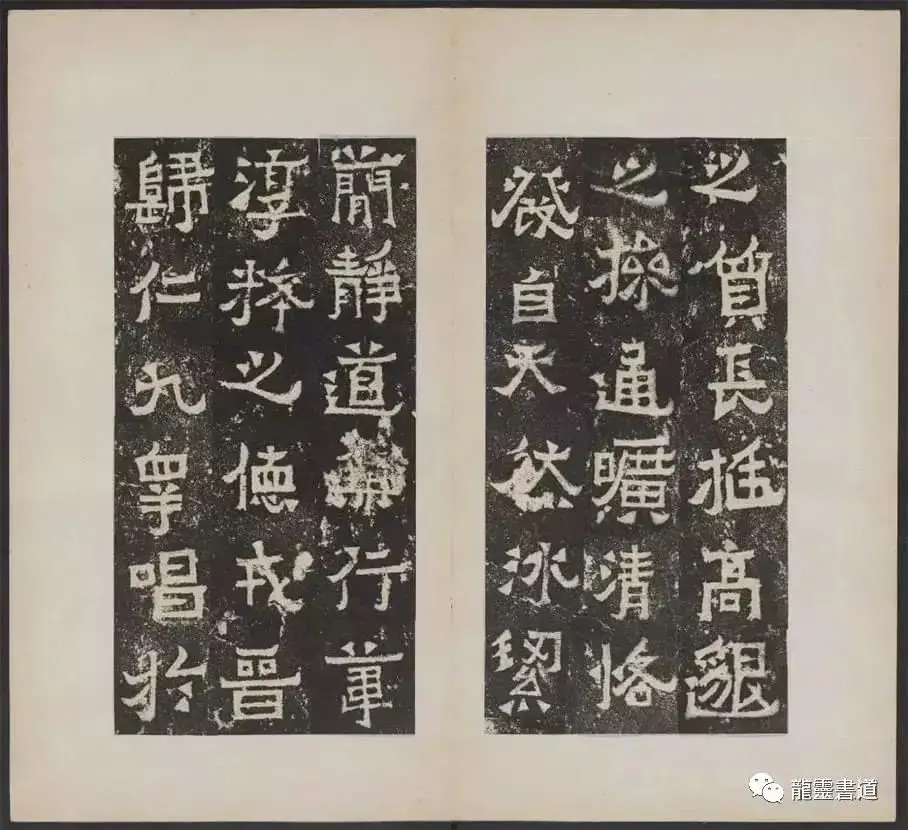 之質長挺高邈
之操通曠清恪
發自天然冰絜
簡靜道兼行葦
淳粹之德戎晉
歸仁九皋唱於
龍靈書道